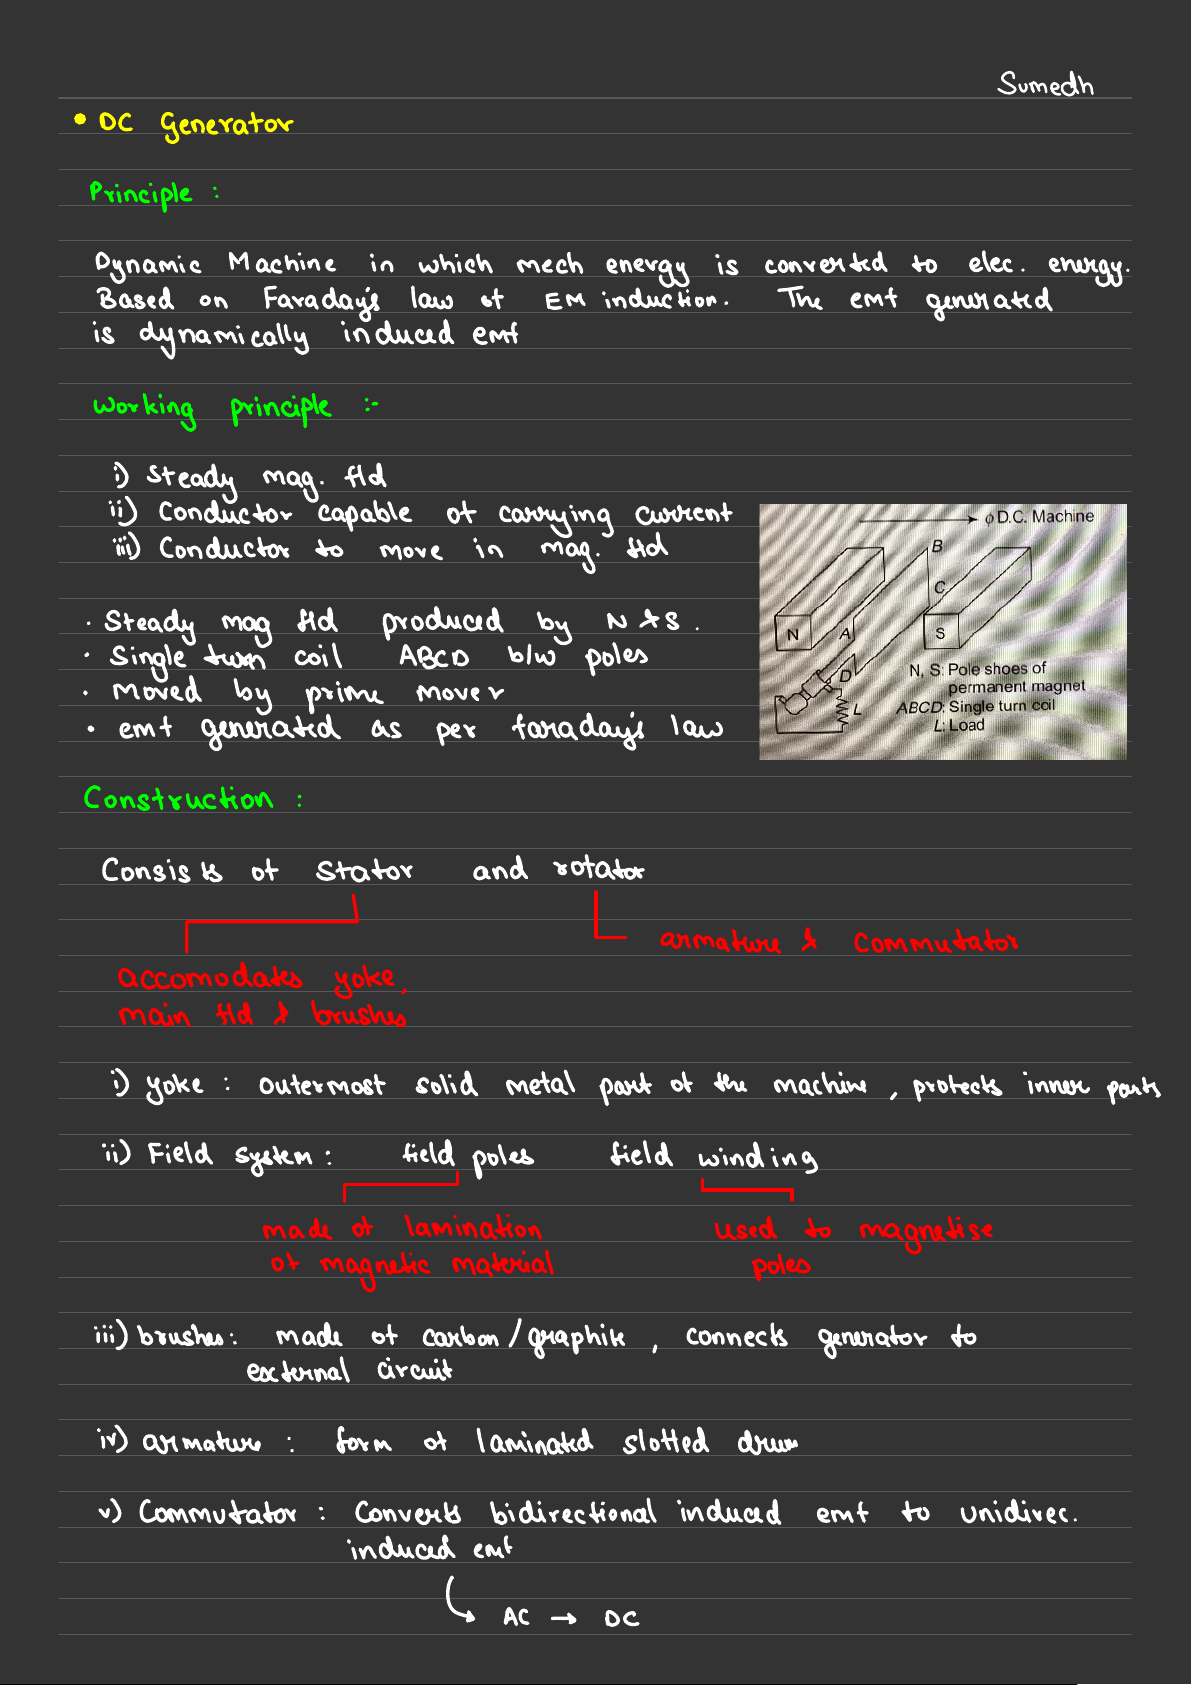 Sumedh
• DC Generator
Principle :
Dynamic Machine in which mech energy is converted to elec. energy.
Based on Faraday's law of EM induction. The emf generated
is dynamically induced emf
Working principle :-
i) Steady mag. fld
ii) Conductor capable of carrying current
iii) Conductor to move in mag. fld
· Steady mag fld produced by N & S.
· Single turn coil ABCD b/w poles
· Moved by prime mover
· emf generated as per faraday's law
ϕ D.C. Machine
B
C
N
A
S
D
L
N, S: Pole shoes of
permanent magnet
ABCD: Single turn coil
L: Load
Construction :
Consists of stator and rotator
armature & commutator
accomodates yoke,
main fld & brushes
i) yoke : outermost solid metal part of the machine, protects inner parts
ii) Field system : field poles field winding
made of lamination
of magnetic material
used to magnetise
poles
iii) brushes: made of carbon/graphite, connects generator to
external circuit
iv) armature : form of laminated slotted drum
v) Commutator : Converts bidirectional induced emf to unidirec.
induced emf
AC → DC